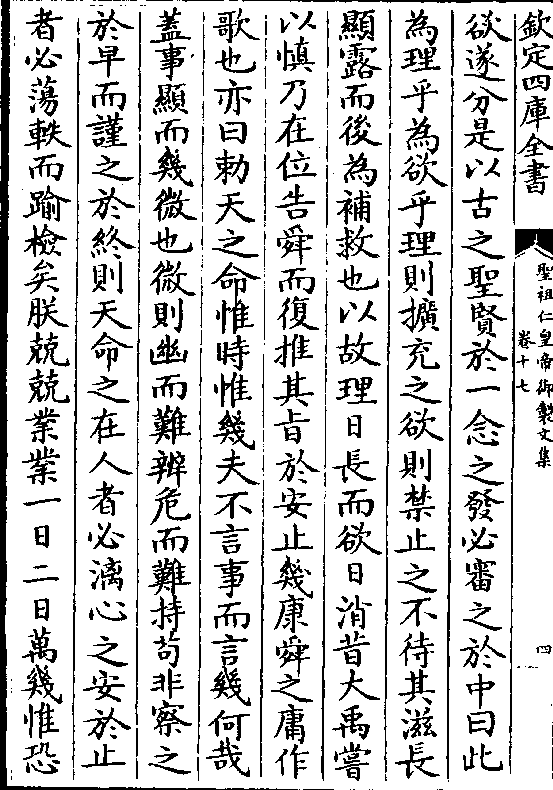 欽定四庫全書
聖祖仁皇帝御製文集
卷十七
四
欲遂分是以古之聖賢於一念之發必審之於中曰此
為理乎為欲乎理則擴充之欲則禁止之不待其滋長
顯露而後為補救也以故理日長而欲日消昔大禹嘗
以慎乃在位告舜而復推其旨於安止幾康舜之庸作
歌也亦曰勅天之命惟時惟幾夫不言事而言幾何哉
蓋事顯而幾微也微則幽而難辨危而難持苟非察之
於早而謹之於終則天命之在人者必漓心之安於止
者必蕩軼而踰檢矣朕兢兢業業一日二日萬幾惟恐